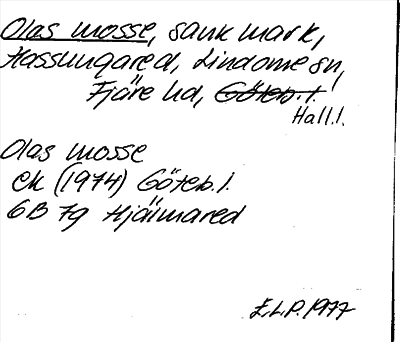 Olas mosse, sank mark,
Hassungared, Lindome sn,
Fjäre hd, Göteb. l.
Hall. l.
Olas mosse
ek (1974) Göteb. l.
6B 7g Hjälmared
E.L.P. 1977